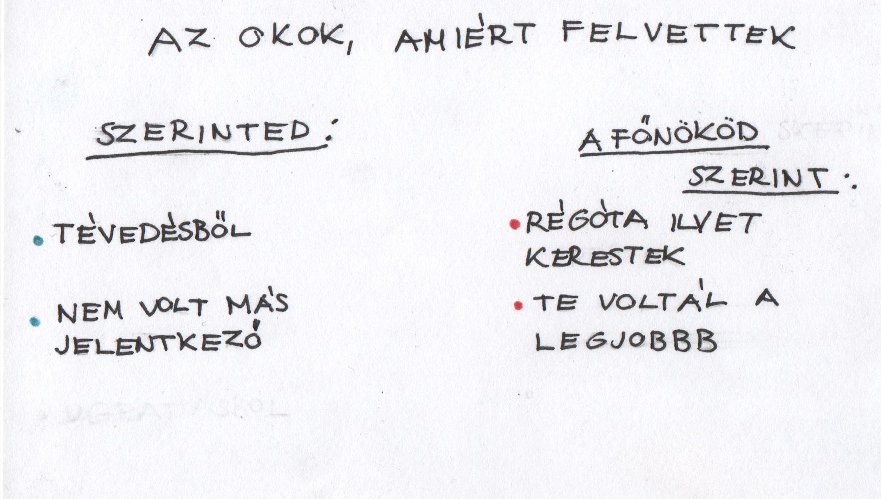 AZ OKOK, AMIÉRT FELVETTEK
SZERINTED:
• TÉVEDÉSBŐL
• NEM VOLT MÁS
JELENTKEZŐ
A FŐNÖKÖD
SZERINT:
• RÉGÓTA ILYET
KERESTEK
• TE VOLTÁL A
LEGJOBBB